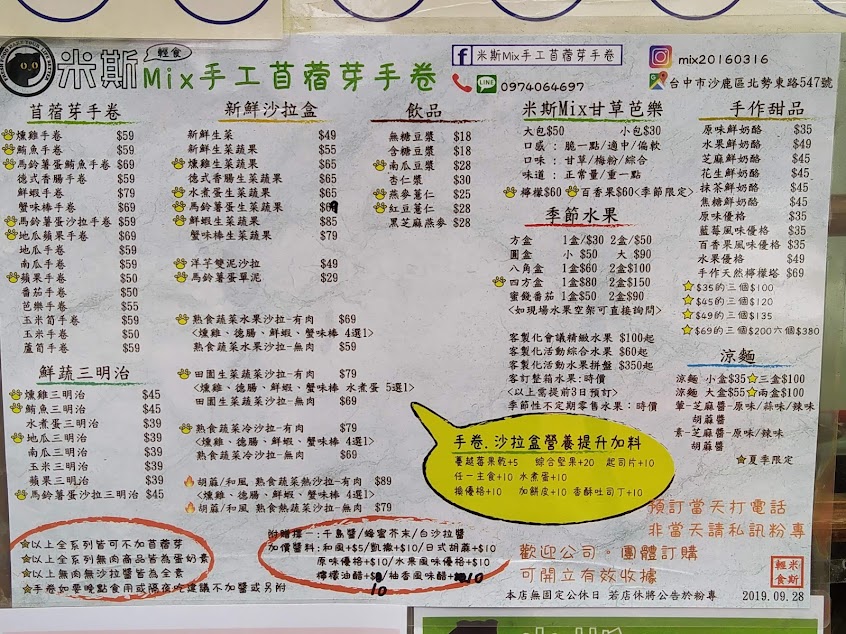 米斯 輕食
Mix手工苜蓿芽手卷
米斯Mix手工苜蓿芽手卷
mix20160316
LINE 0974064697
台中市沙鹿區北勢東路547號
苜蓿芽手卷
燻雞手卷 $59
鮪魚手卷 $59
馬鈴薯蛋鮪魚手卷 $69
德式香腸手卷 $59
鮮蝦手卷 $79
蟹味棒手卷 $69
馬鈴薯蛋沙拉手卷 $59
地瓜蘋果手卷 $69
地瓜手卷 $59
南瓜手卷 $59
蘋果手卷 $50
番茄手卷 $50
芭樂手卷 $55
玉米筍手卷 $59
玉米手卷 $50
蘆筍手卷 $59
鮮蔬三明治
燻雞三明治 $45
鮪魚三明治 $45
水煮蛋三明治 $39
地瓜三明治 $39
南瓜三明治 $39
玉米三明治 $39
蘋果三明治 $39
馬鈴薯蛋沙拉三明治 $45
☆以上全系列皆可不加苜蓿芽
☆以上無肉商品皆為蛋奶素
☆以上無肉無沙拉醬皆為全素
☆手卷如要晚點食用或隔夜吃建議不加醬或另附
新鮮沙拉盒
新鮮生菜 $49
新鮮生菜蔬果 $55
燻雞生菜蔬果 $65
德式香腸生菜蔬果 $65
水煮蛋生菜蔬果 $65
馬鈴薯蛋生菜蔬果 $69
鮮蝦生菜蔬果 $85
蟹味棒生菜蔬果 $79
洋芋雙泥沙拉 $49
馬鈴薯蛋單泥 $29
熟食蔬菜水果沙拉-有肉 $69
<燻雞、德腸、鮮蝦、蟹味棒 4選1>
熟食蔬菜水果沙拉-無肉 $59
田園生菜蔬果-有肉 $79
<燻雞、德腸、鮮蝦、蟹味棒 水煮蛋 5選1>
田園生菜蔬果-無肉 $69
熟食蔬菜冷沙拉-有肉 $79
<燻雞、德腸、鮮蝦、蟹味棒 4選1>
熟食蔬菜冷沙拉-無肉 $69
胡蔴/和風 熟食蔬菜熱沙拉-有肉 $89
<燻雞、德腸、鮮蝦、蟹味棒 4選1>
胡蔴/和風 熟食蔬菜熱沙拉-無肉 $79
附贈擇一:千島醬/蜂蜜芥末/白沙拉醬
加價醬料:和風+$5/凱撒+$10/日式胡蔴+$10
原味優格+$10/水果風味優格+$10
檸檬油醋+$10/柚香風味醋+10
飲品
無糖豆漿 $18
含糖豆漿 $18
南瓜豆漿 $28
杏仁漿 $30
燕麥薏仁 $25
紅豆薏仁 $28
黑芝麻燕麥 $28
米斯Mix甘草芭樂
大包$50 小包$30
口感:脆一點/適中/偏軟
口味:甘草/梅粉/綜合
味道:正常量/重一點
檸檬$60 百香果$60<季節限定>
季節水果
方盒 1盒/$30 2盒/$50
圓盒 小 $50 大 $90
八角盒 1盒$60 2盒$100
四方盒 1盒$80 2盒$150
蜜餞番茄 1盒$50 2盒$90
<如現場水果空架可直接詢問>
客製化會議精緻水果 $100起
客製化活動綜合水果 $60起
客製化活動水果拼盤 $350起
客訂整箱水果:時價
<以上需提前3日預訂>
季節性不定期零售水果:時價
手作甜品
原味鮮奶酪 $35
水果鮮奶酪 $49
芝麻鮮奶酪 $45
花生鮮奶酪 $45
抹茶鮮奶酪 $45
焦糖鮮奶酪 $45
原味優格 $35
藍莓風味優格 $35
百香果風味優格 $35
水果優格 $49
手作天然檸檬塔 $69
☆$35的三個$100
☆$45的三個$120
☆$49的三個$135
☆$69的三個$200六個$380
涼麵
涼麵 小盒$35☆三盒$100
涼麵 大盒$55☆兩盒$100
葷-芝麻醬-原味/蒜味/辣味
胡蔴醬
素-芝麻醬-原味/辣味
胡蔴醬
☆夏季限定
手卷.沙拉盒營養提升加料
蔓越莓果乾+5 綜合堅果+20 起司片+10
任一主食+10 水煮蛋+10
換優格+10 加餅皮+10 香酥吐司丁+10
預訂當天打電話
非當天請私訊粉專
歡迎公司。團體訂購
可開立有效收據
本店無固定公休日 若店休將公告於粉專
米斯輕食
2019.09.28